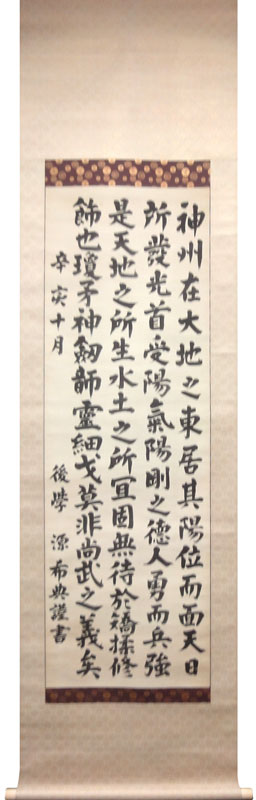 神州在大地之東居其陽位而面天日
所發光首受陽氣陽剛之德人勇而兵強
是天地之所生水土之所宜固無待於矯揉修
飾也瓊矛神劔韴靈細戈莫非尚武之義矣
辛亥十月 後學 源希典謹書